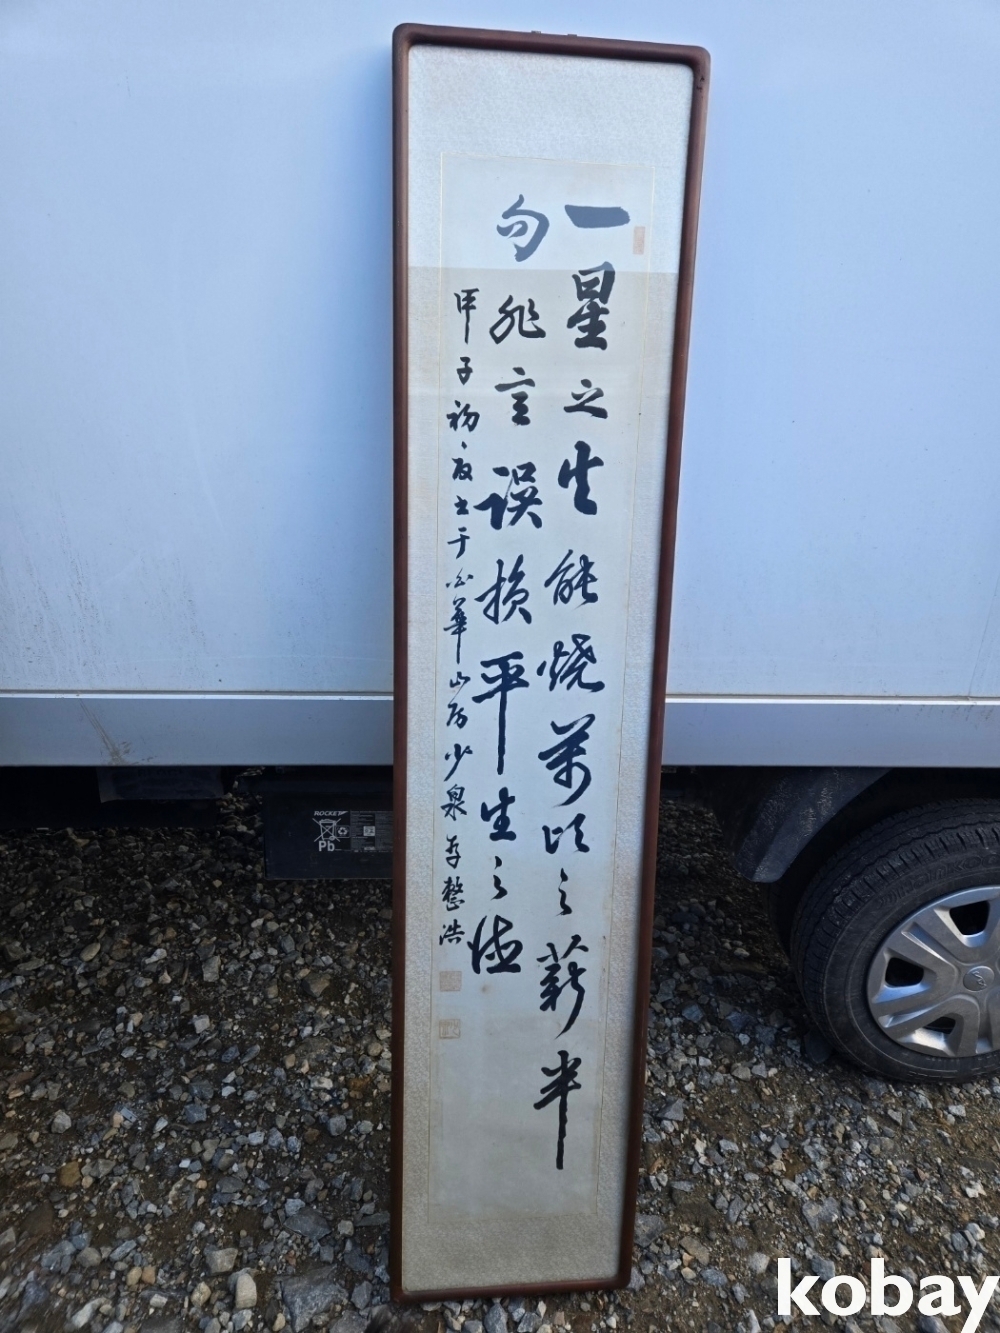 一星之火能燒萬頃之薪半
句非言誤損平生之德
甲子初夏書于白華山房少泉整浩
ROCKET
Pb
kobay